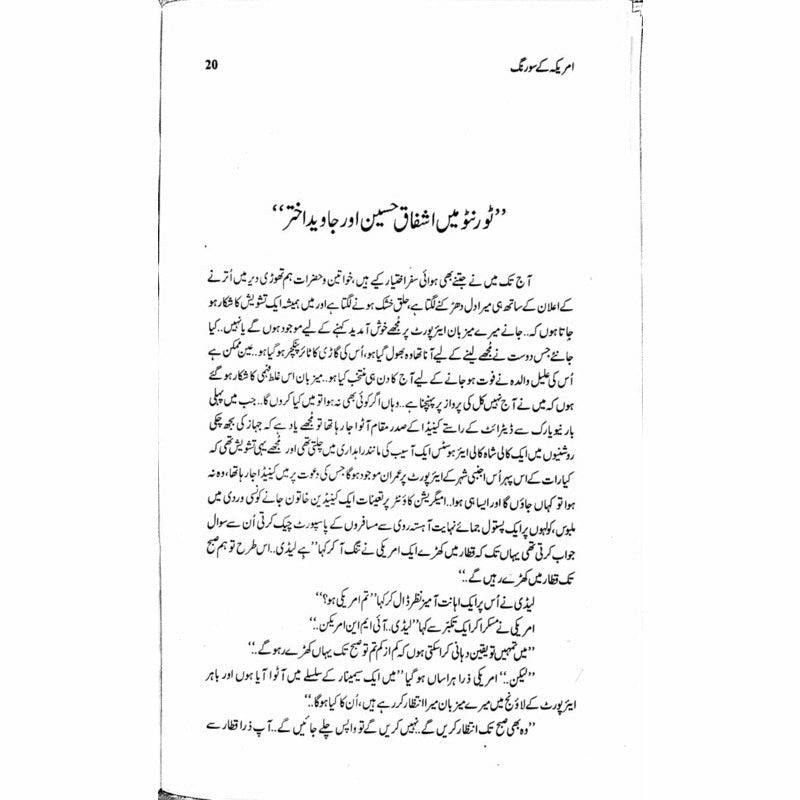 امریکہ کے سورنگ
20
”ٹورنٹو میں اشفاق حسین اور جاوید اختر“
آج تک میں نے جتنے بھی ہوائی سفر اختیار کیے ہیں، خواتین و حضرات ہم تھوڑی دیر میں اُترنے
کے اعلان کے ساتھ ہی میرا دل دھڑکنے لگتا ہے، حلق خشک ہونے لگتا ہے اور میں ہمیشہ ایک تشویش کا شکار ہو
جاتا ہوں کہ.. جانے میرے میزبان ایئرپورٹ پر مجھے خوش آمدید کہنے کے لیے موجود ہوں گے یا نہیں.. کیا
جانئے جس دوست نے مجھے لینے کے لیے آنا تھا وہ بھول گیا ہو، اُس کی گاڑی کا ٹائر پنکچر ہو گیا ہو.. عین ممکن ہے
اُس کی علیل والدہ نے فوت ہو جانے کے لیے آج کا دن ہی منتخب کیا ہو.. میزبان اس غلط فہمی کا شکار ہو گئے
ہوں کہ میں نے آج نہیں کل کی پرواز پر پہنچنا ہے.. وہاں اگر کوئی بھی نہ ہوا تو میں کیا کروں گا.. جب میں پہلی
بار نیویارک سے ڈیٹرائٹ کے راستے کینیڈا کے صدر مقام آٹوا جا رہا تھا تو مجھے یاد ہے کہ جہاز کی بجھ چکی
روشنیوں میں ایک کالی شاہ کالی ایئر ہوسٹس ایک آسیب کی مانند راہداری میں چلتی تھی اور مجھے یہی تشویش تھی کہ
کیا رات کے اس پہر اُس اجنبی شہر کے ایئرپورٹ پر عمران موجود ہو گا جس کی دعوت پر میں کینیڈا جا رہا تھا، وہ نہ
ہوا تو کہاں جاؤں گا اور ایسا ہی ہوا.. امیگریشن کاؤنٹر پر تعینات ایک کینیڈین خاتون جانے کونسی وردی میں
ملبوس، کولہوں پر ایک پستول جمائے نہایت آہستہ روی سے مسافروں کے پاسپورٹ چیک کرتی اُن سے سوال
جواب کرتی تھی یہاں تک کہ قطار میں کھڑے ایک امریکی نے تنگ آ کر کہا ”ہے لیڈی.. اس طرح تو ہم صبح
تک قطار میں کھڑے رہیں گے..“
لیڈی نے اُس پر ایک اہانت آمیز نظر ڈال کر کہا ”تم امریکی ہو؟“
امریکی نے مسکرا کر ایک تکبر سے کہا ”لیڈی.. آئی ایم این امریکن..“
”میں تمہیں تو یقین دہانی کرا سکتی ہوں کہ کم از کم تم تو صبح تک یہاں کھڑے رہو گے..“
”لیکن..“ امریکی ذرا ہراساں ہو گیا ”میں ایک سیمینار کے سلسلے میں آٹوا آیا ہوں اور باہر
ایئرپورٹ کے لاؤنج میں میرے میزبان میرا انتظار کر رہے ہیں، اُن کا کیا ہو گا..“
”وہ بھی صبح تک انتظار کریں گے.. نہیں کریں گے تو واپس چلے جائیں گے.. آپ ذرا قطار سے